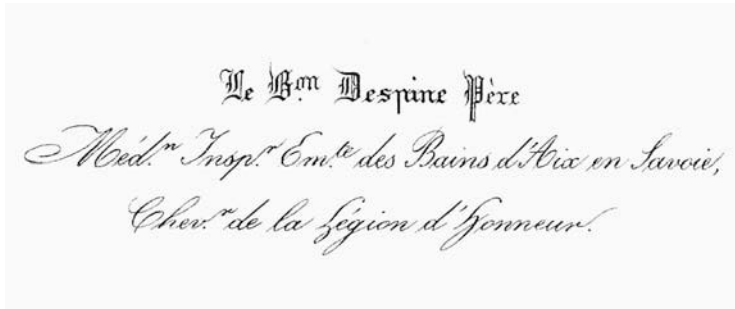 Le B.on Despine Père
Méd.n Insp.r Em.te des Bains d'Aix en Savoie,
Chev.r de la Légion d'Honneur.